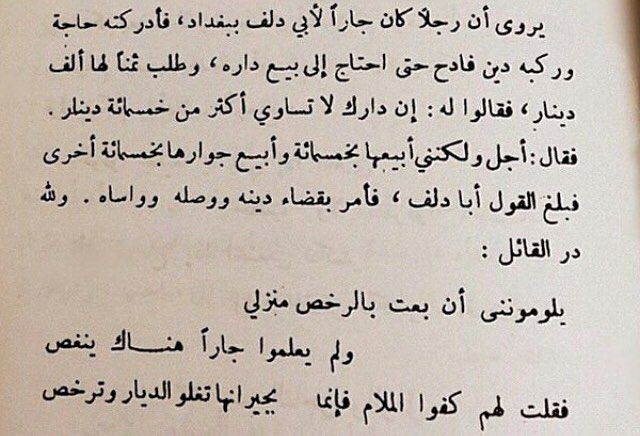 يروى أن رجلاً كان جاراً لأبي دلف ببغداد، فأدركته حاجة
وركبه دين فادح حتى احتاج إلى بيع داره، وطلب ثمناً لها ألف
دينار، فقالوا له: إن دارك لا تساوي أكثر من خمسمائة دينار.
فقال: أجل ولكنني أبيعها بخمسمائة وأبيع جوارها بخمسمائة أخرى
فبلغ القول أبا دلف، فأمر بقضاء دينه ووصله وواساه. ولله
در القائل:
يلوموننى أن بعت بالرخص منزلي
ولم يعلموا جاراً هناك ينغص
فقلت لهم كفوا الملام فإنما بجيرانها تغلو الديار وترخص